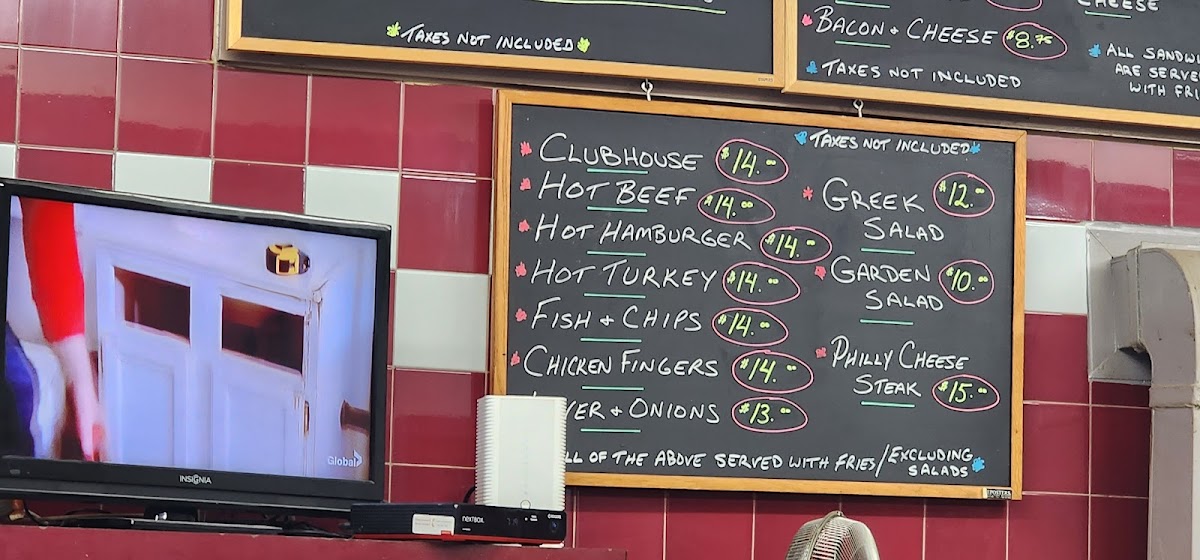 TAXES NOT INCLUDED
CHEESE
BACON + CHEESE $8.75
TAXES NOT INCLUDED
ALL
ARE
WITH
TAXES NOT INCLUDED
CLUBHOUSE $14.00
HOT BEEF $14.00
HOT HAMBURGER $14.00
HOT TURKEY $14.00
FISH + CHIPS $14.00
CHICKEN FINGERS $14.00
+ ONIONS $13.00
GREEK $12.00
SALAD
GARDEN $10.00
SALAD
PHILLY CHEESE
STEAK $15.00
OF THE ABOVE SERVED WITH FRIES/EXCLUDING
SALADS
Global
INSIGNIA
NEXTBOX